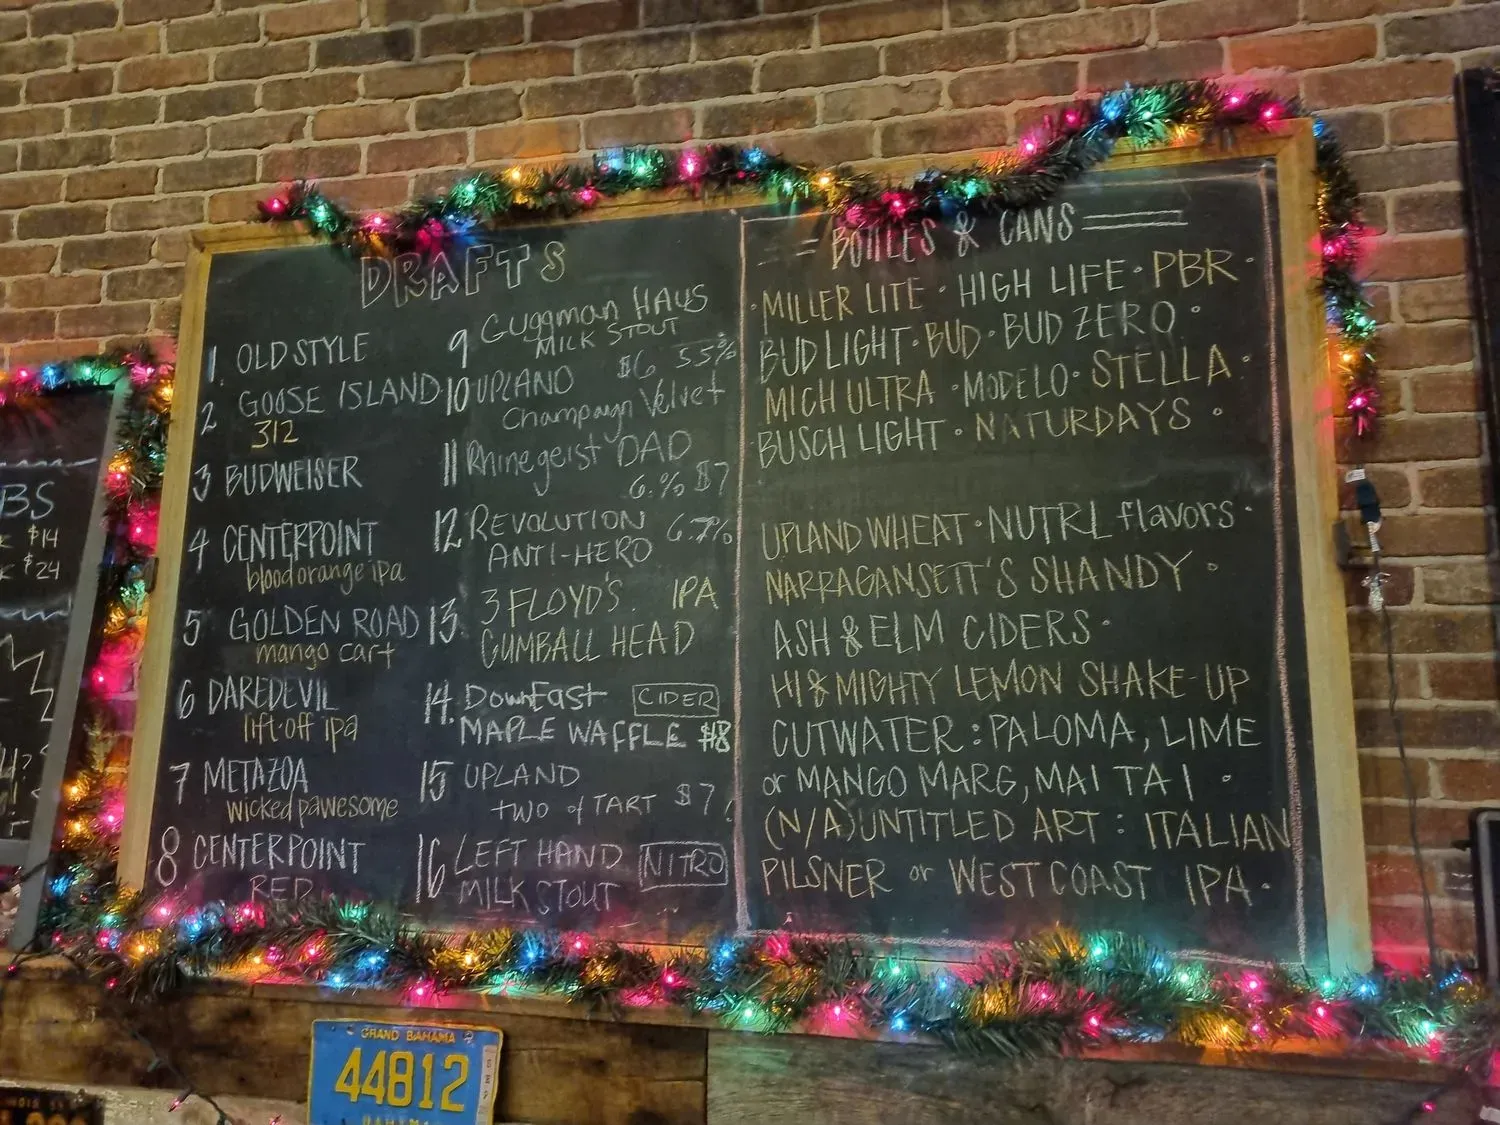 DRAFTS
1. OLD STYLE
2 GOOSE ISLAND
312
3 BUDWEISER
4 CENTERPOINT
blood orange ipa
5 GOLDEN ROAD
mango cart
6 DAREDEVIL
lift off ipa
7 METAZOA
wicked pawesome
8 CENTERPOINT
RED
9 Guggman HAUS
MILK STOUT
$6 5.5%
10 UPLAND
Champaign Velvet
11 Rhinegeist DAD
6.% $7
12 REVOLUTION 6.7%
ANTI-HERO
13 3 FLOYD'S. IPA
GUMBALL HEAD
14. DownEast CIDER
MAPLE WAFFLE $8
15 UPLAND
TWO of TART $7
16 LEFT HAND NITRO
MILK STOUT
= BOTTLES & CANS =
· MILLER LITE · HIGH LIFE · PBR ·
BUD LIGHT · BUD · BUD ZERO ·
MICH ULTRA · MODELO · STELLA ·
BUSCH LIGHT · NATURDAYS ·
UPLAND WHEAT · NUTRL flavors ·
NARRAGANSETT'S SHANDY ·
ASH & ELM CIDERS ·
HI & MIGHTY LEMON SHAKE-UP
CUTWATER : PALOMA, LIME
or MANGO MARG, MAI TAI ·
(N/A) UNTITLED ART : ITALIAN
PILSNER or WEST COAST IPA ·
BS
$14
$24
GRAND BAHAMA
44812
BAHAMA